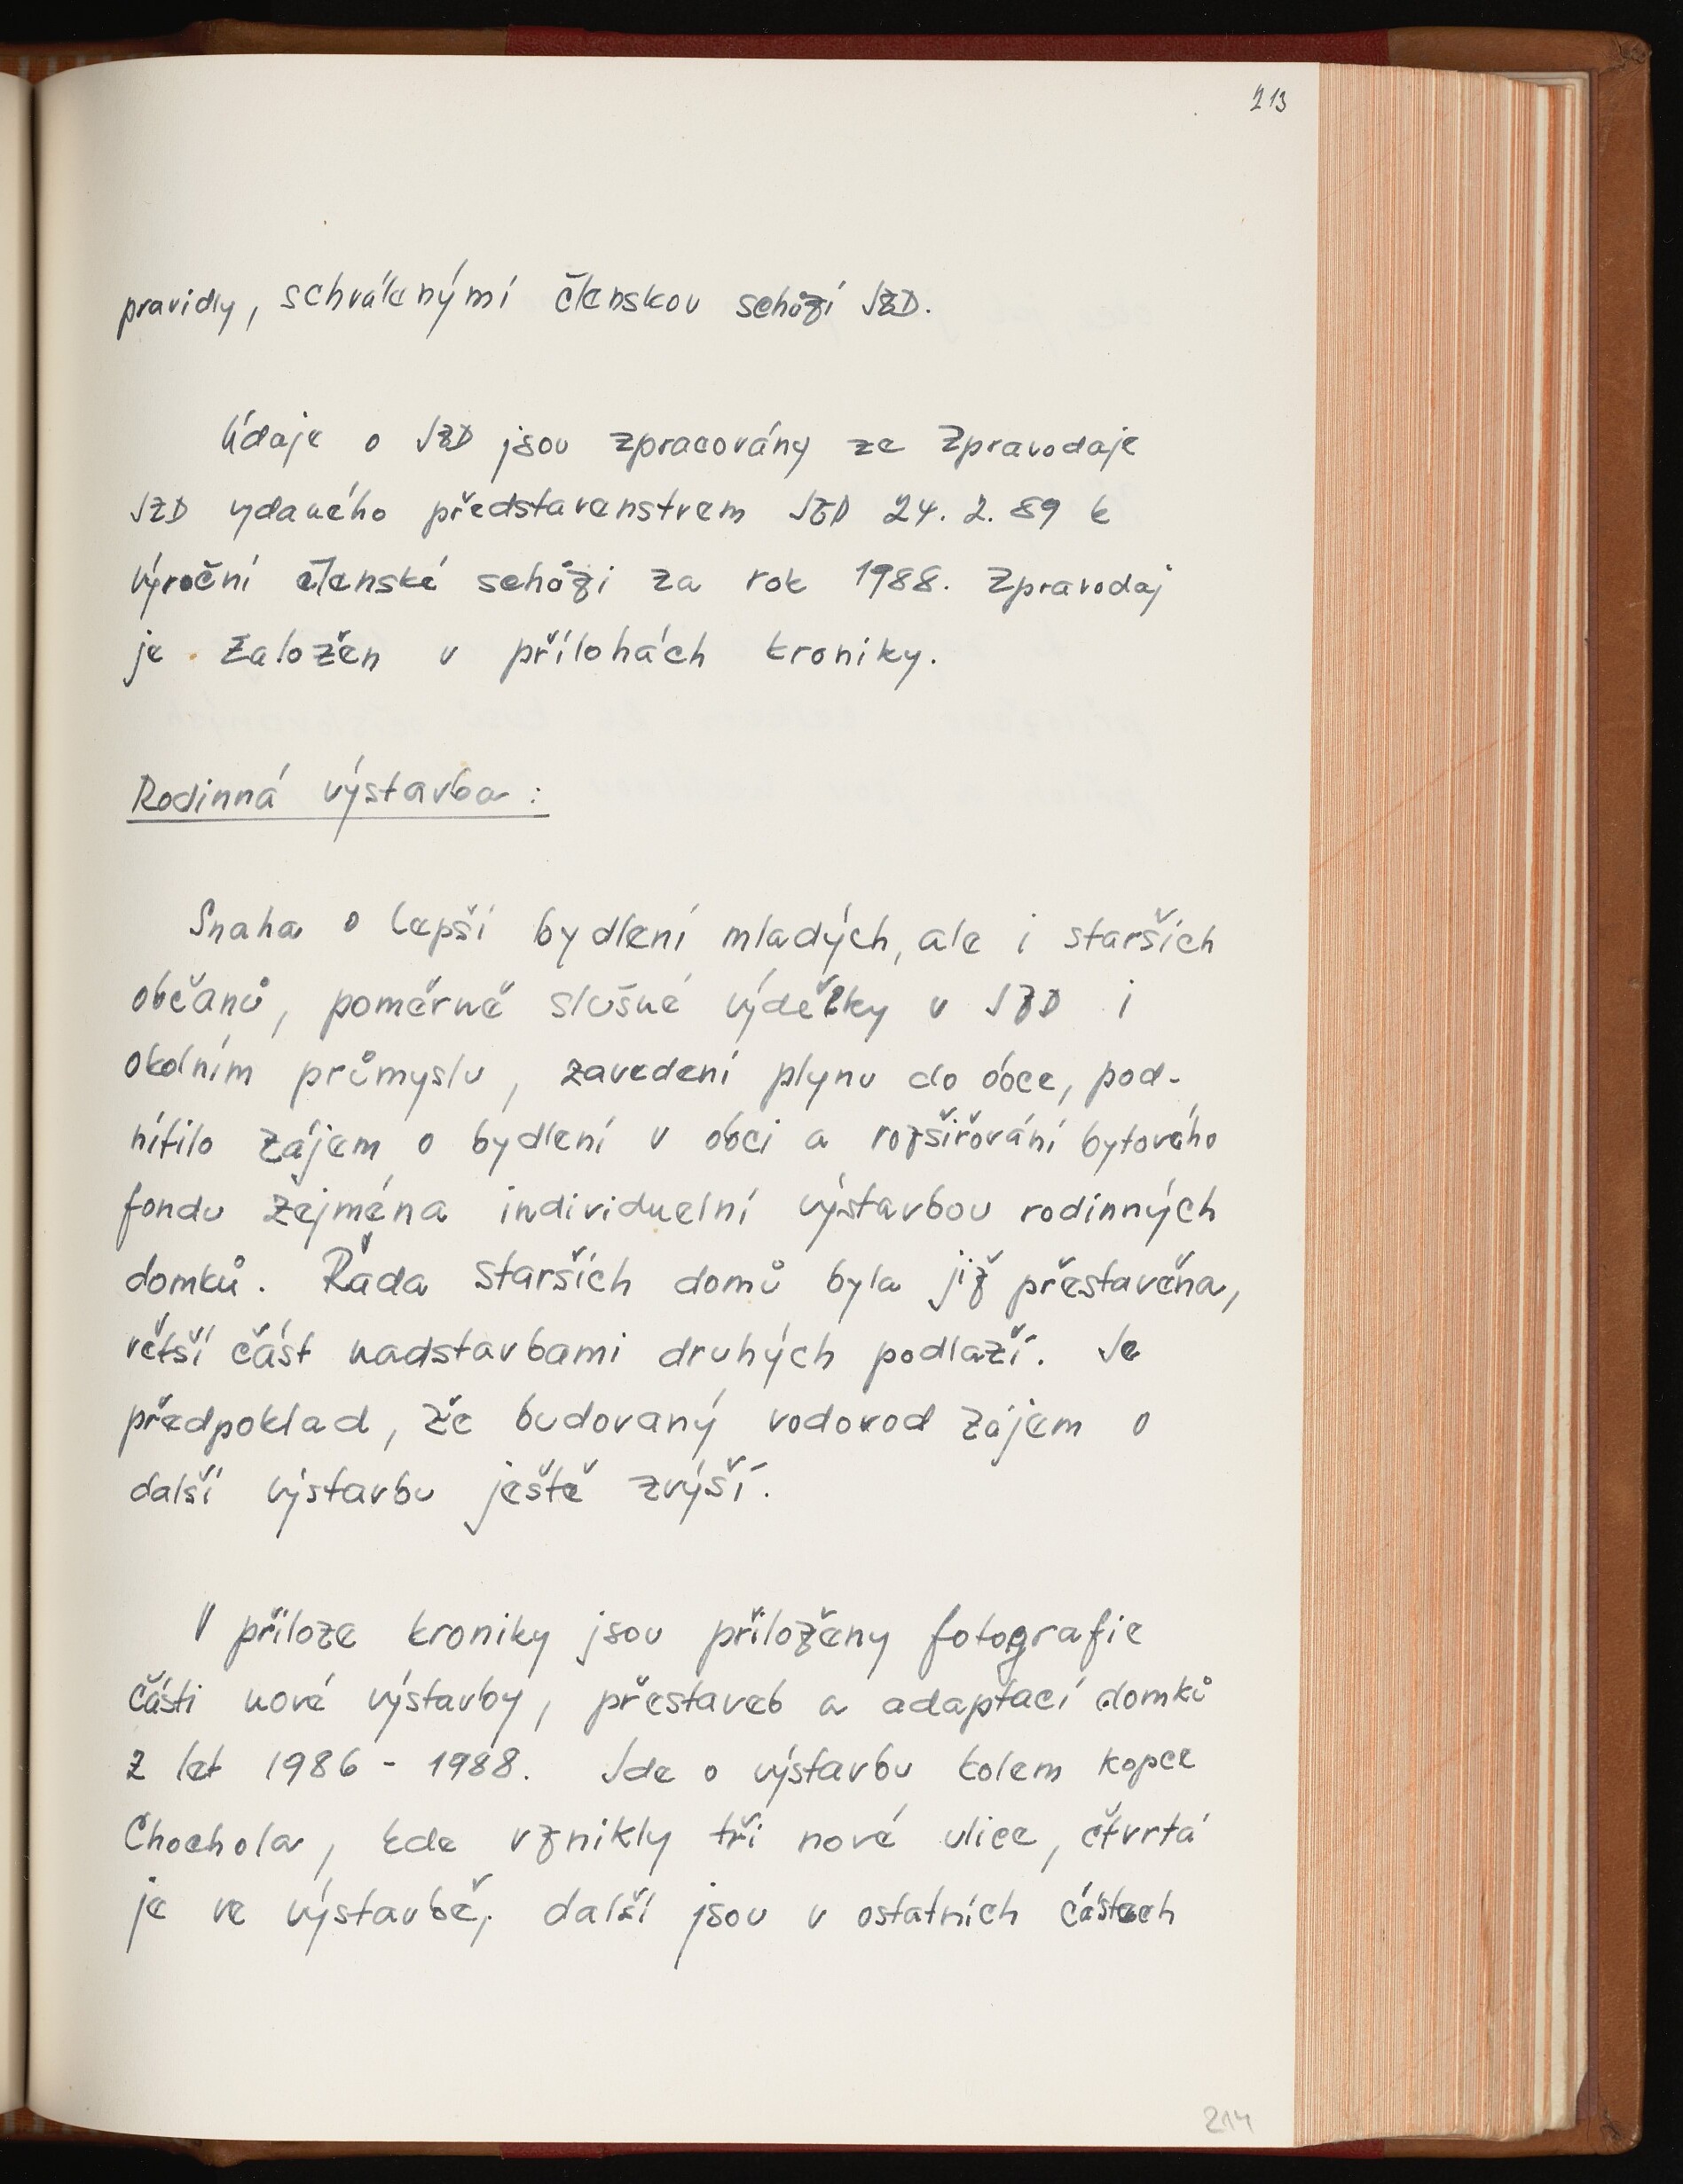 213
pravidly, schválenými členskou schůzí JZD.
Údaje o JZD jsou zpracovány ze Zpravodaje
JZD vydaného představenstvem JZD 24. 2. 89 k
výroční členské schůzi za rok 1988. Zpravodaj
je založen v přílohách kroniky.
Rodinná výstavba:
Snaha o lepší bydlení mladých, ale i starších
občanů, poměrně slušné výdělky v JZD i
okolním průmyslu, zavedení plynu do obce, pod-
nítilo zájem o bydlení v obci a rozšiřování bytového
fondu zejména individuelní výstavbou rodinných
domků. Řada starších domů byla již přestavěna,
větší část nadstavbami druhých podlaží. Je
předpoklad, že budovaný vodovod zájem o
další výstavbu ještě zvýší.
V příloze kroniky jsou přiloženy fotografie
části nové výstavby, přestaveb a adaptací domků
z let 1986 - 1988. Jde o výstavbu kolem kopce
Chochola, kde vznikly tři nové ulice, čtvrtá
je ve výstavbě, další jsou v ostatních částech
214